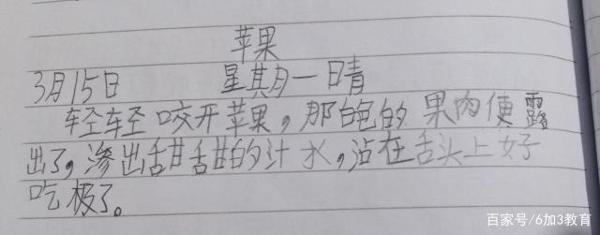 苹果
3月15日 星期一 晴
轻轻咬开苹果，那白色的果肉便露
出了，渗出甜甜的汁水，沾在舌头上好
吃极了。
百家号/6加3教育